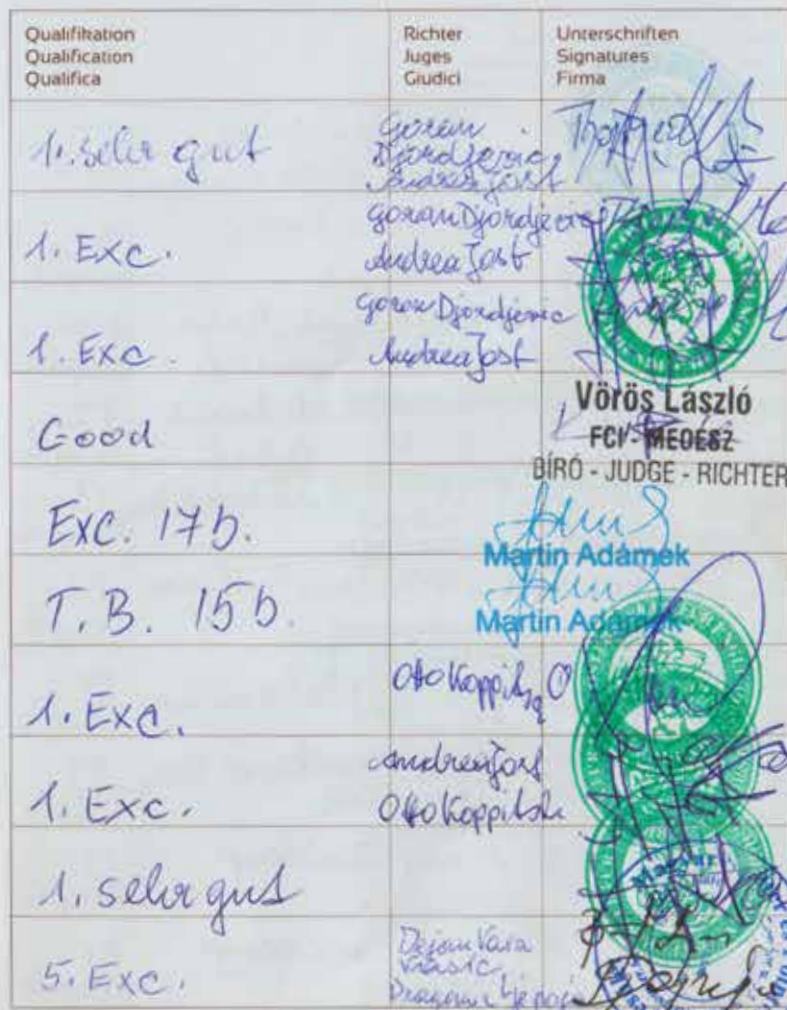 Qualifikation
Qualification
Qualifica
Richter
Juges
Giudici
Unterschriften
Signatures
Firma
1. sehr gut
Goran
Djordjevic
Andrea Jost
1. Exc.
Goran Djordjevic
Andrea Jost
1. Exc.
Goran Djordjevic
Andrea Jost
Good
Vörös László
FCI - MEOESZ
BÍRÓ - JUDGE - RICHTER
Exc. 17 b.
Martin Adámek
T.B. 15 b.
Martin Adámek
1. Exc.
Otto Koppitsch
1. Exc.
Andrea Jost
Otto Koppitsch
1. sehr gut
5. Exc.
Dejan